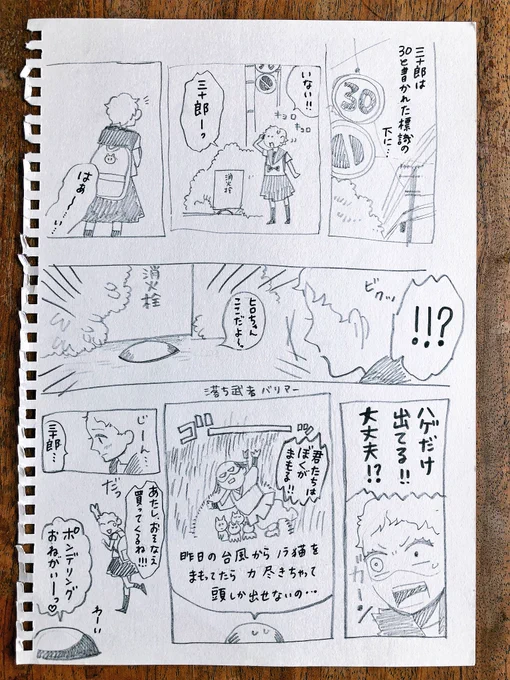 三十郎は
30と書かれた標識の
下に…
30
いない!!
キョロ
キョロ
三十郎ーっ
消火栓
はぁ〜〜い…
!!?
ビクッ
ヒロちゃん
ここだよ〜っ
消火栓
ハゲだけ
出てる!!
大丈夫!?
ガーン
落ち武者バリアー
ゴーーッ
君たちは
ぼくが
まもる!!
昨日の台風からノラ猫を
まもってたら力尽きちゃって
頭しか出せないの…
じーん…
三十郎…
あたし、おそなえ
買ってくるね!!!
だっ
わーい
ポンデリング
おねがいーっ♡